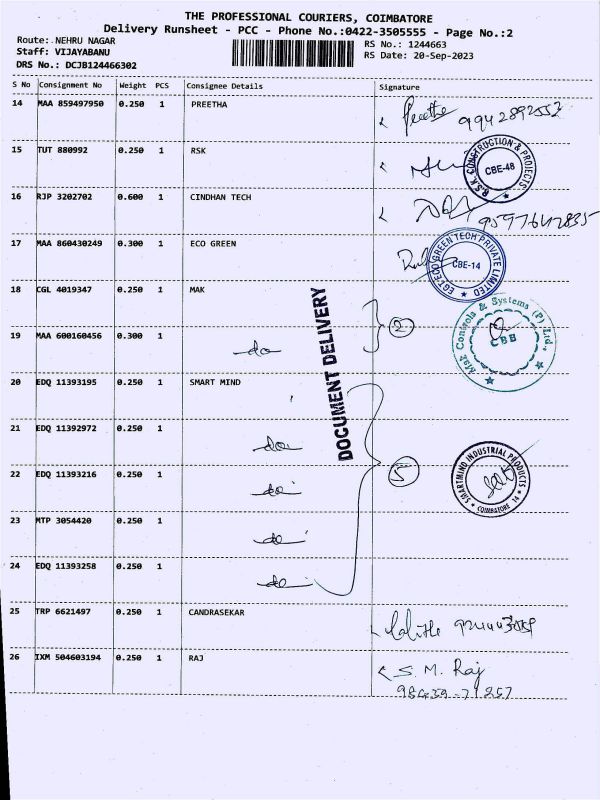 THE PROFESSIONAL COURIERS, COIMBATORE
Delivery Runsheet - PCC - Phone No.:0422-3505555 - Page No.:2
Route: NEHRU NAGAR
Staff: VIJAYABANU
DRS No.: DCJB124466302
RS No.: 1244663
RS Date: 20-Sep-2023
S No Consignment No Weight PCS Consignee Details Signature
14 MAA 859497950 0.250 1 PREETHA Preetha
15 TUT 880992 0.250 1 RSK
R.S.K. CONSTRUCTION & PROJECTS CBE-48
16 RJP 3202702 0.600 1 CINDHAN TECH
17 MAA 860430249 0.300 1 ECO GREEN
ECO GREEN TECH PRIVATE LIMITED CBE-14
18 CGL 4019347 0.250 1 MAK
19 MAA 600160456 0.300 1 do 2
Mak Controls & Systems (P) Ltd., CBE
DOCUMENT DELIVERY
20 EDQ 11393195 0.250 1 SMART MIND
21 EDQ 11392972 0.250 1 do
22 EDQ 11393216 0.250 1 do 5
SMARTMIND INDUSTRIAL PRODUCTS COIMBATORE 14
23 MTP 3054420 0.250 1 do
24 EDQ 11393258 0.250 1 do
25 TRP 6621497 0.250 1 CANDRASEKAR Lalitha
26 IXM 504603194 0.250 1 RAJ S. M. Raj